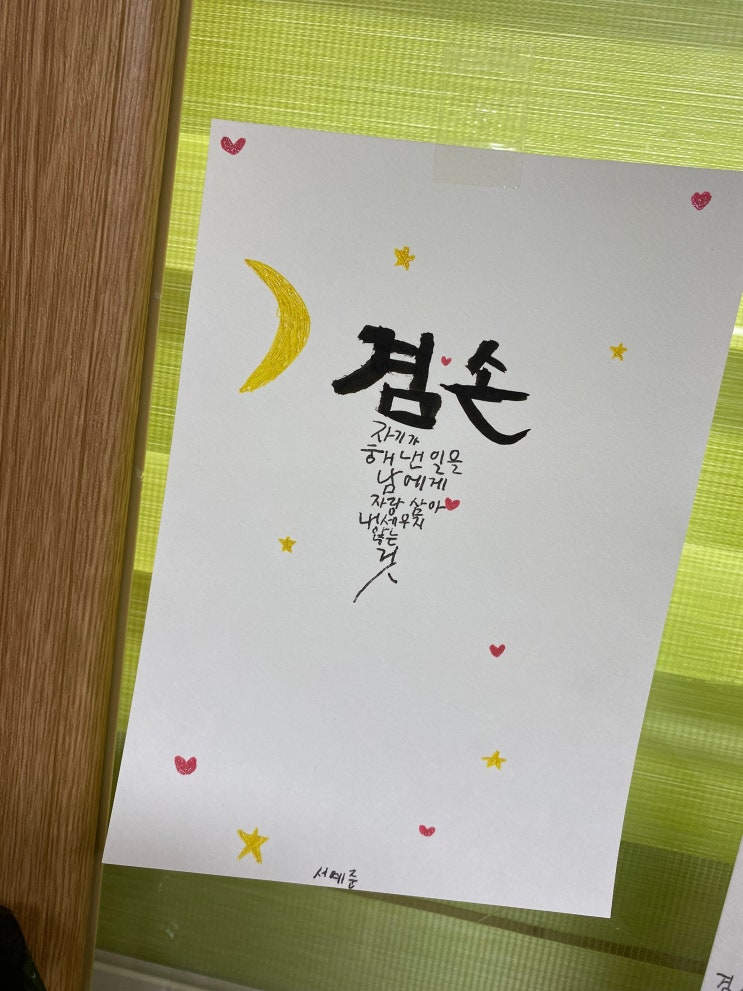 겸손
자기가
해 낸 일을
남에게
자랑 삼아
내세우지
않는
것
서예준